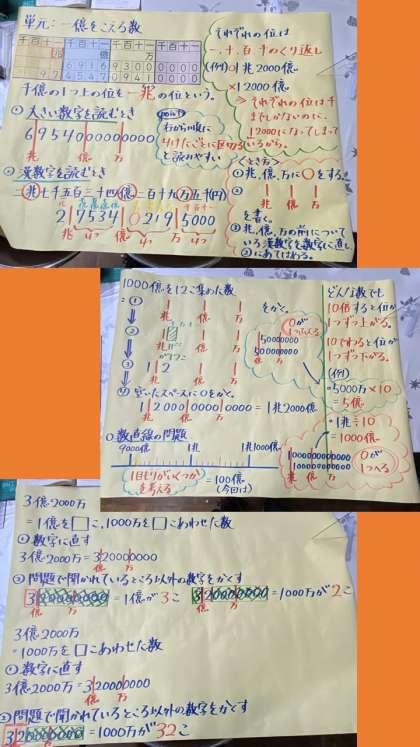 単元:一億をこえる数
千百十一千百十一千百十一千百十一
兆 億 万
6916 9300 0000
97 4547 0941 0000
千億の1つ上の位を一兆の位という。
①大きい数字を読むとき
6954000000000
兆 億 万
point
右から順に
4けたごとに区切る
と読みやすい
②漢数字を読むとき
二兆七千五百三十四億二百十九万五千(円)
2|7534|0219|5000
兆 4つ 億 4つ 万 4つ
それぞれの位は
一、十、百、千のくり返し
(例)○1兆2000億
×12000億
→それぞれの位は千
までしかないのに、
12000になってしまって
いるから。
<とき方>
①兆、億、万に○をする
②
兆 億 万
を書く。
③兆、億、万の前について
いる漢数字を数字に直し
②にあてはめる。
1000億を12こ集めた数
=①
兆 億 万
をかく。
②
兆 億 万
が12こ
③
1 2
兆 億 万
④空いたスペースに0をかく。
1|2000|0000|0000=1兆2000億
○数直線の問題
9000億 1兆 1兆1000億
1目もりがいくつか
を考える
=100億
(今回は)
どんな数でも
10倍すると位が
1つずつ上がる。
10でわると位が
1つずつ下がる。
(例)
・5000万×10
=5億
・1兆÷10
=1000億
0が
1つふえる
50000000
500000000
億 万
1000000000000
100000000000
兆 億 万
0が
1つへる
3億2000万
=1億を□こ、1000万を□こあわせた数
①数字に直す
3億2000万=320000000
億 万
②問題で聞かれているところ以外の数字をかくす
320000000=1億が3こ
億 万
320000000=1000万が2こ
億 万
3億2000万
=1000万を□こあわせた数
①数字に直す
3億2000万=320000000
億 万
②問題で聞かれているところ以外の数字をかくす
320000000=1000万が32こ
億 万